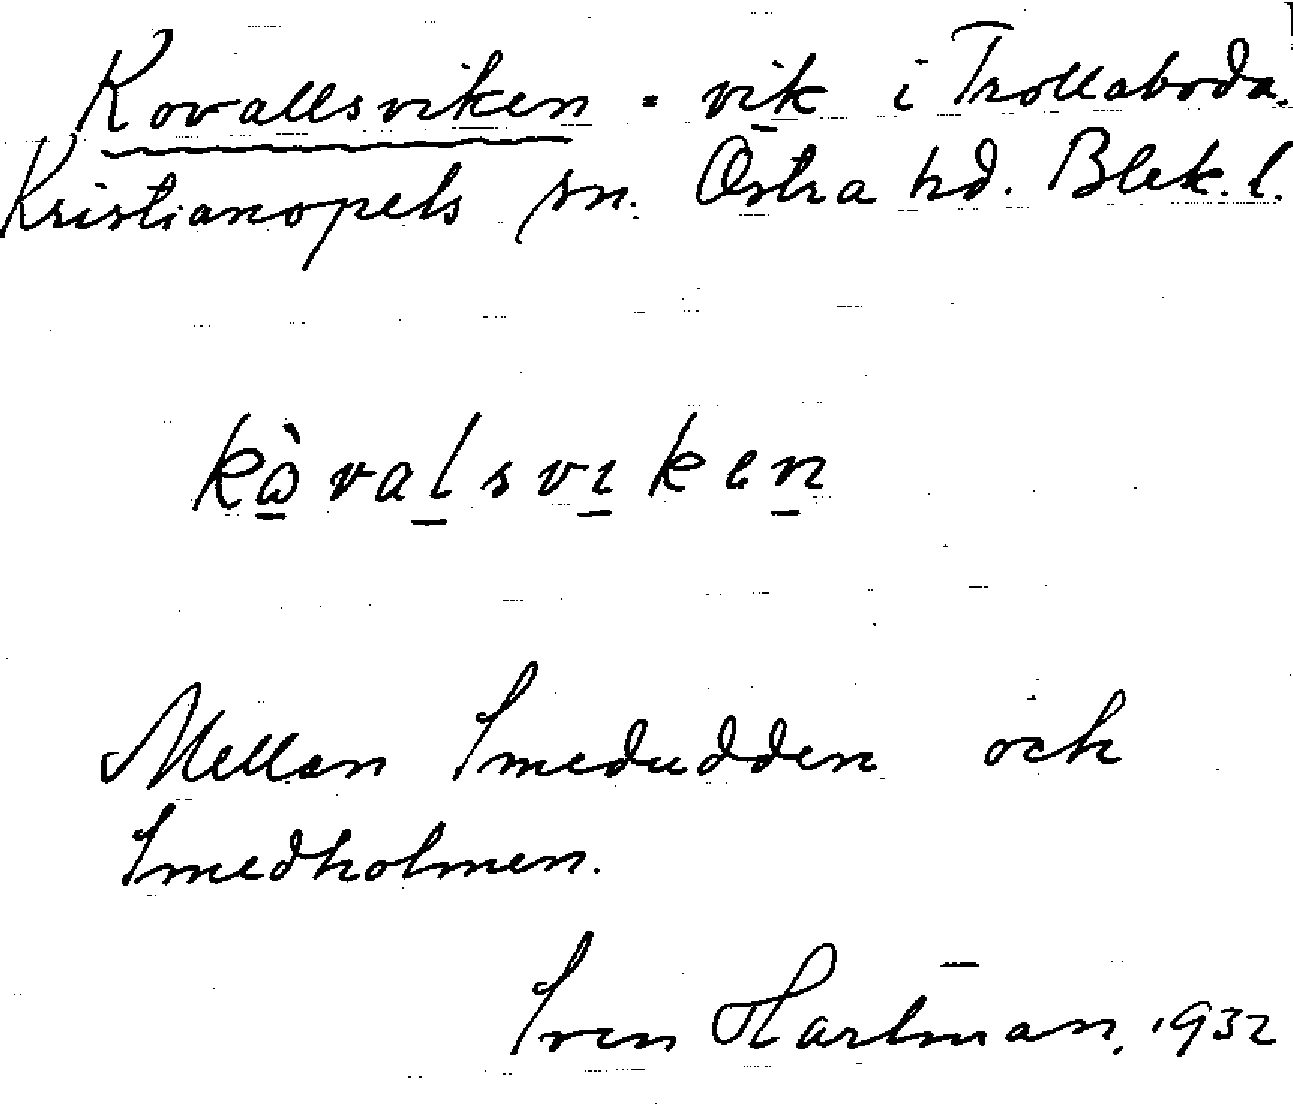 Kovallsviken = vik i Trollaboda.
Kristianopels sn. Östra hd. Blek. l.
kàvalsvıken
Mellan Smedudden och
Smedholmen.
Sven Hartman, 1932